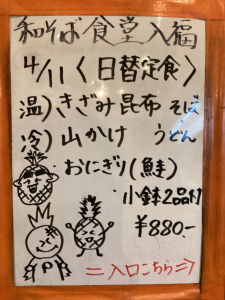 和そば食堂入福
4/11〈日替定食〉
温)きざみ昆布そば
冷)山かけ うどん
おにぎり(鮭)
小鉢2品付
¥880-
=入口こちら⇒